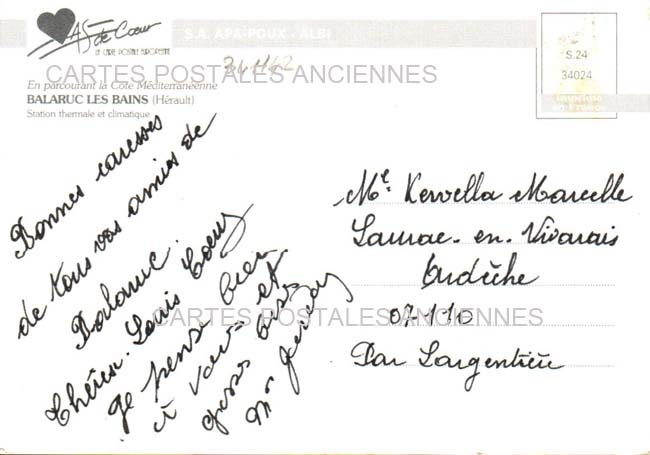 AS de Cœur
LA CARTE POSTALE EUROPÉENNE
S.A. APA-POUX - ALBI
341162
CARTES POSTALES ANCIENNES
En parcourant la Côte Méditerranéenne
BALARUC LES BAINS (Hérault)
Station thermale et climatique
S.24
34024
Imprimé
en France
Bonnes caresses
de tous vos amies de
Balaruc.
Thérèse. Louis
Je pense bien
à vous et
grosses bises
Me Kervella Marcelle
Laurac-en-Vivarais
Ardèche
07110
CARTES POSTALES ANCIENNES
Par Largentière